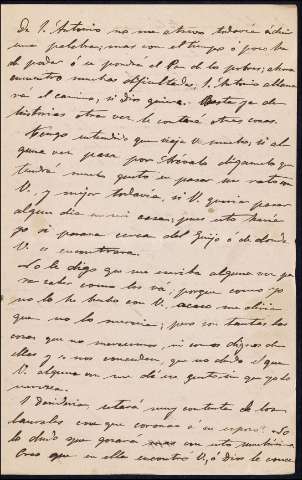 De S. Antonio no me atrevo todavía á decir
una palabra; mas con el tiempo ó poco ha
de poder ó se pondrá el Pan de los pobres; ahora
encuentro muchas dificultades, S. Antonio allana-
rá el camino, si Dios quiere. Basta ya de
historias otra vez le contaré otras cosas.
Tengo entendido que viaja V. mucho, si al-
guna vez pasa por Arévalo dígamelo que
tendré mucho gusto en pasar un rato con
V. y mejor todavía, si V. quería pasar
algun dia en mi casa; pues esto haria
yo si pasara cerca del Guijo ó de donde
V. se encontrara.
No le digo que me escriba alguna vez pa-
ra saber como les vá, porque como yo
no lo he hecho con V. acaso me diria
que no lo merecia; pero son tantas las
cosas que no merecemos, ni somos dignos de
ellas y se nos conceden, que no dudo el que
V. alguna vez me dé ese gusto sin que yo lo
merezca.
Desideria, estará muy contenta de los
laureles con que coronan á su esposo. No
lo dudo que gozará con esto muchísimo.
Creo que en ella encontró V. ó Dios le conce-